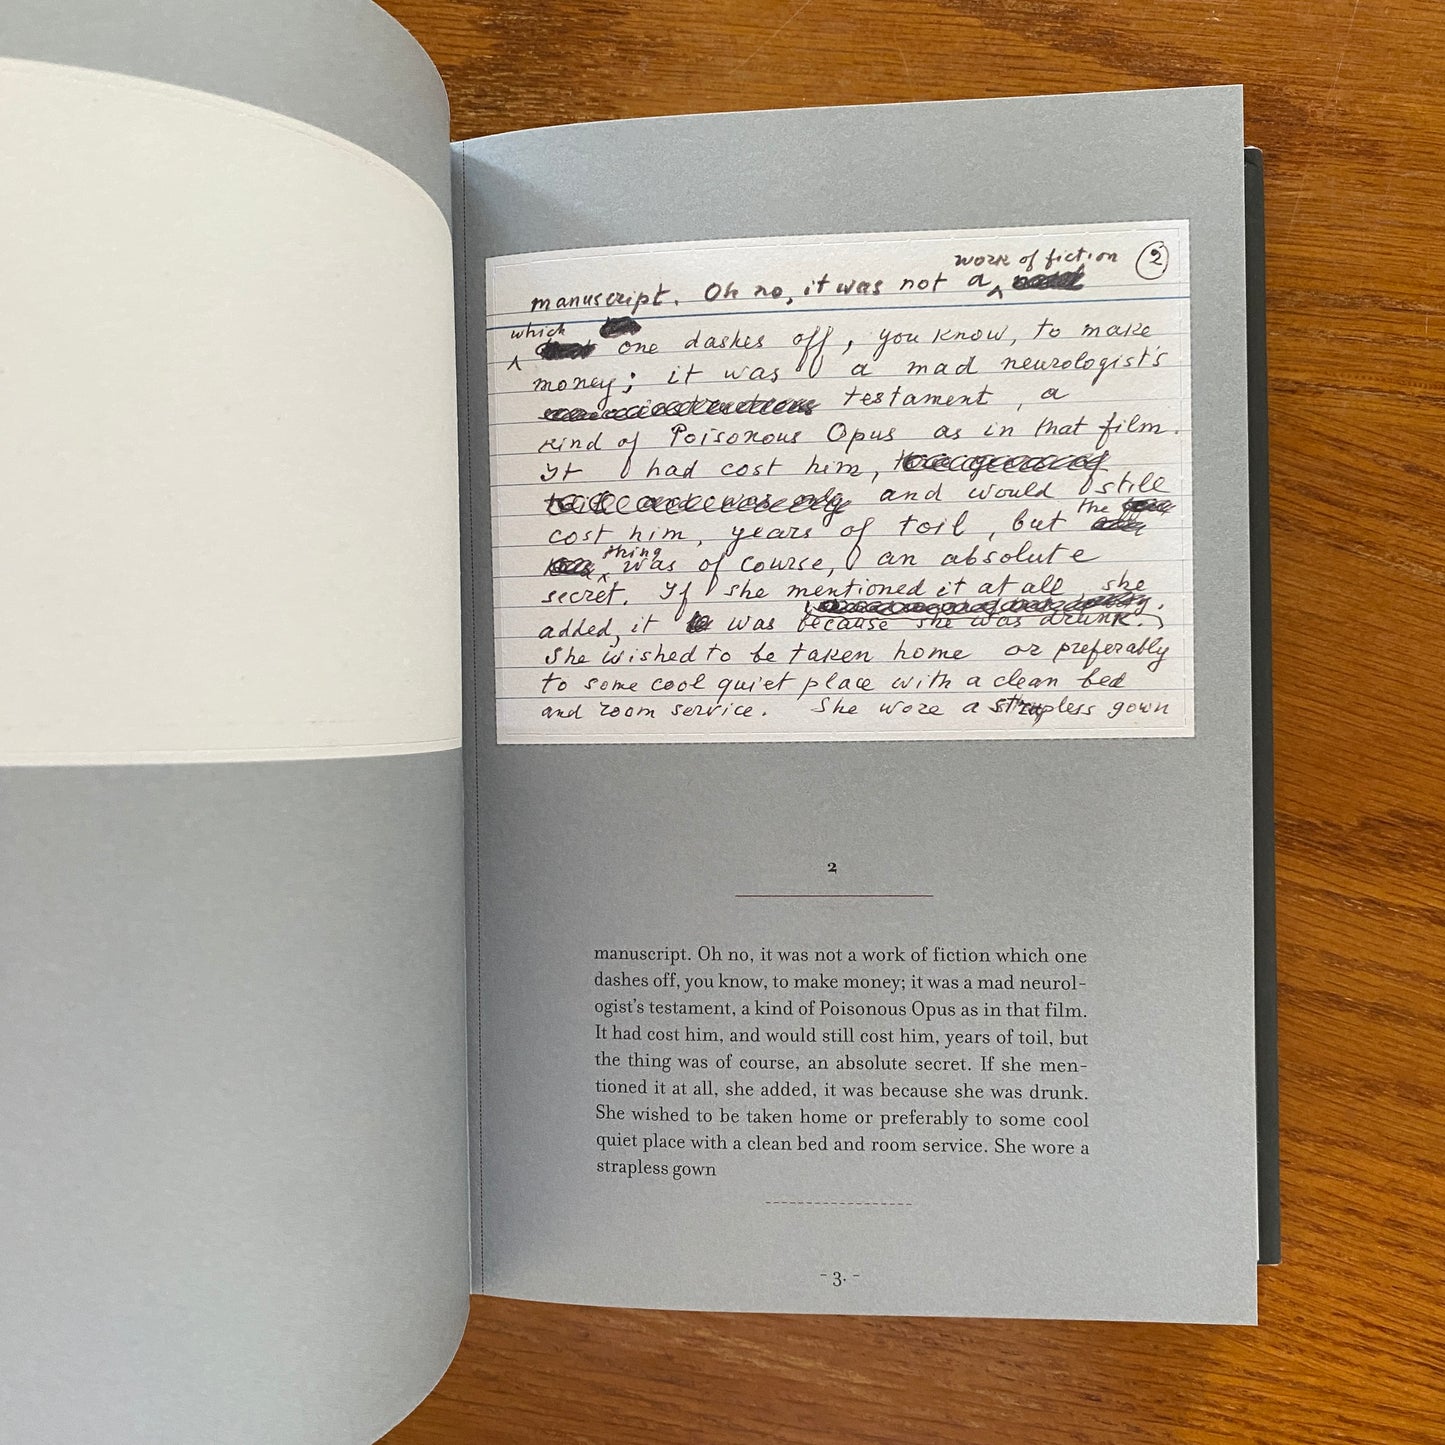 work of fiction 2
manuscript. Oh no, it was not a
which
one dashes off, you know, to make
money; it was a mad neurologist's
testament, a
kind of Poisonous Opus as in that film.
It had cost him,
and would still
cost him, years of toil, but the
thing
was of course, an absolute
secret. If she mentioned it at all, she
added, it was because she was drunk.
She wished to be taken home or preferably
to some cool quiet place with a clean bed
and room service. She wore a strapless gown
2
manuscript. Oh no, it was not a work of fiction which one
dashes off, you know, to make money; it was a mad neurol-
ogist's testament, a kind of Poisonous Opus as in that film.
It had cost him, and would still cost him, years of toil, but
the thing was of course, an absolute secret. If she men-
tioned it at all, she added, it was because she was drunk.
She wished to be taken home or preferably to some cool
quiet place with a clean bed and room service. She wore a
strapless gown
- 3. -